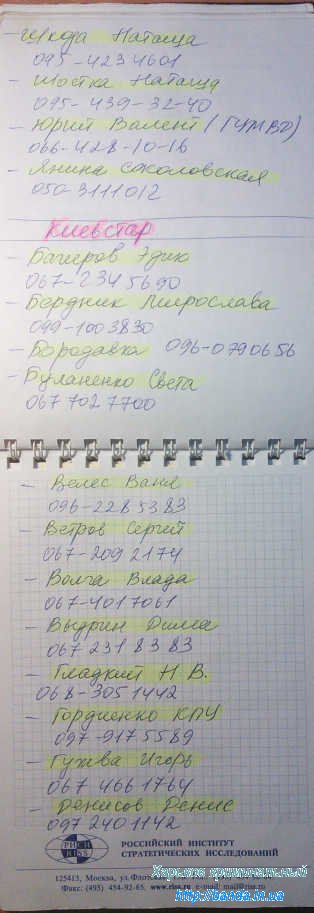 - Шкода Наташа
095-4234601
- Шостка Наташа
095-439-32-40
- Юрий Валент (ГУМВД)
066-428-10-16
- Янина Соколовская
050-3111012
Киевстар
- Багиров Эдик
067-2345690
- Бердник Мирослава
099-1003830
- Бородавка 096-0790656
- Буланенко Света
067 702 7700
- Велес Ваня
096-2285383
- Ветров Сергей
067-2092174
- Волга Влада
067-4017061
- Выдрин Дима
067 231 83 83
- Гладкий Н.В.
068-3051442
- Гордиенко КПУ
097-9175589
- Гужва Игорь
067 4661764
- Денисов Денис
097 2401142
РИСИ
RISS
РОССИЙСКИЙ ИНСТИТУТ
СТРАТЕГИЧЕСКИХ ИССЛЕДОВАНИЙ
125413, Москва, ул.Флотская
Факс: (495) 454-92-65, www.riss.ru e-mail: mail@riss.ru
Харьков криминальный